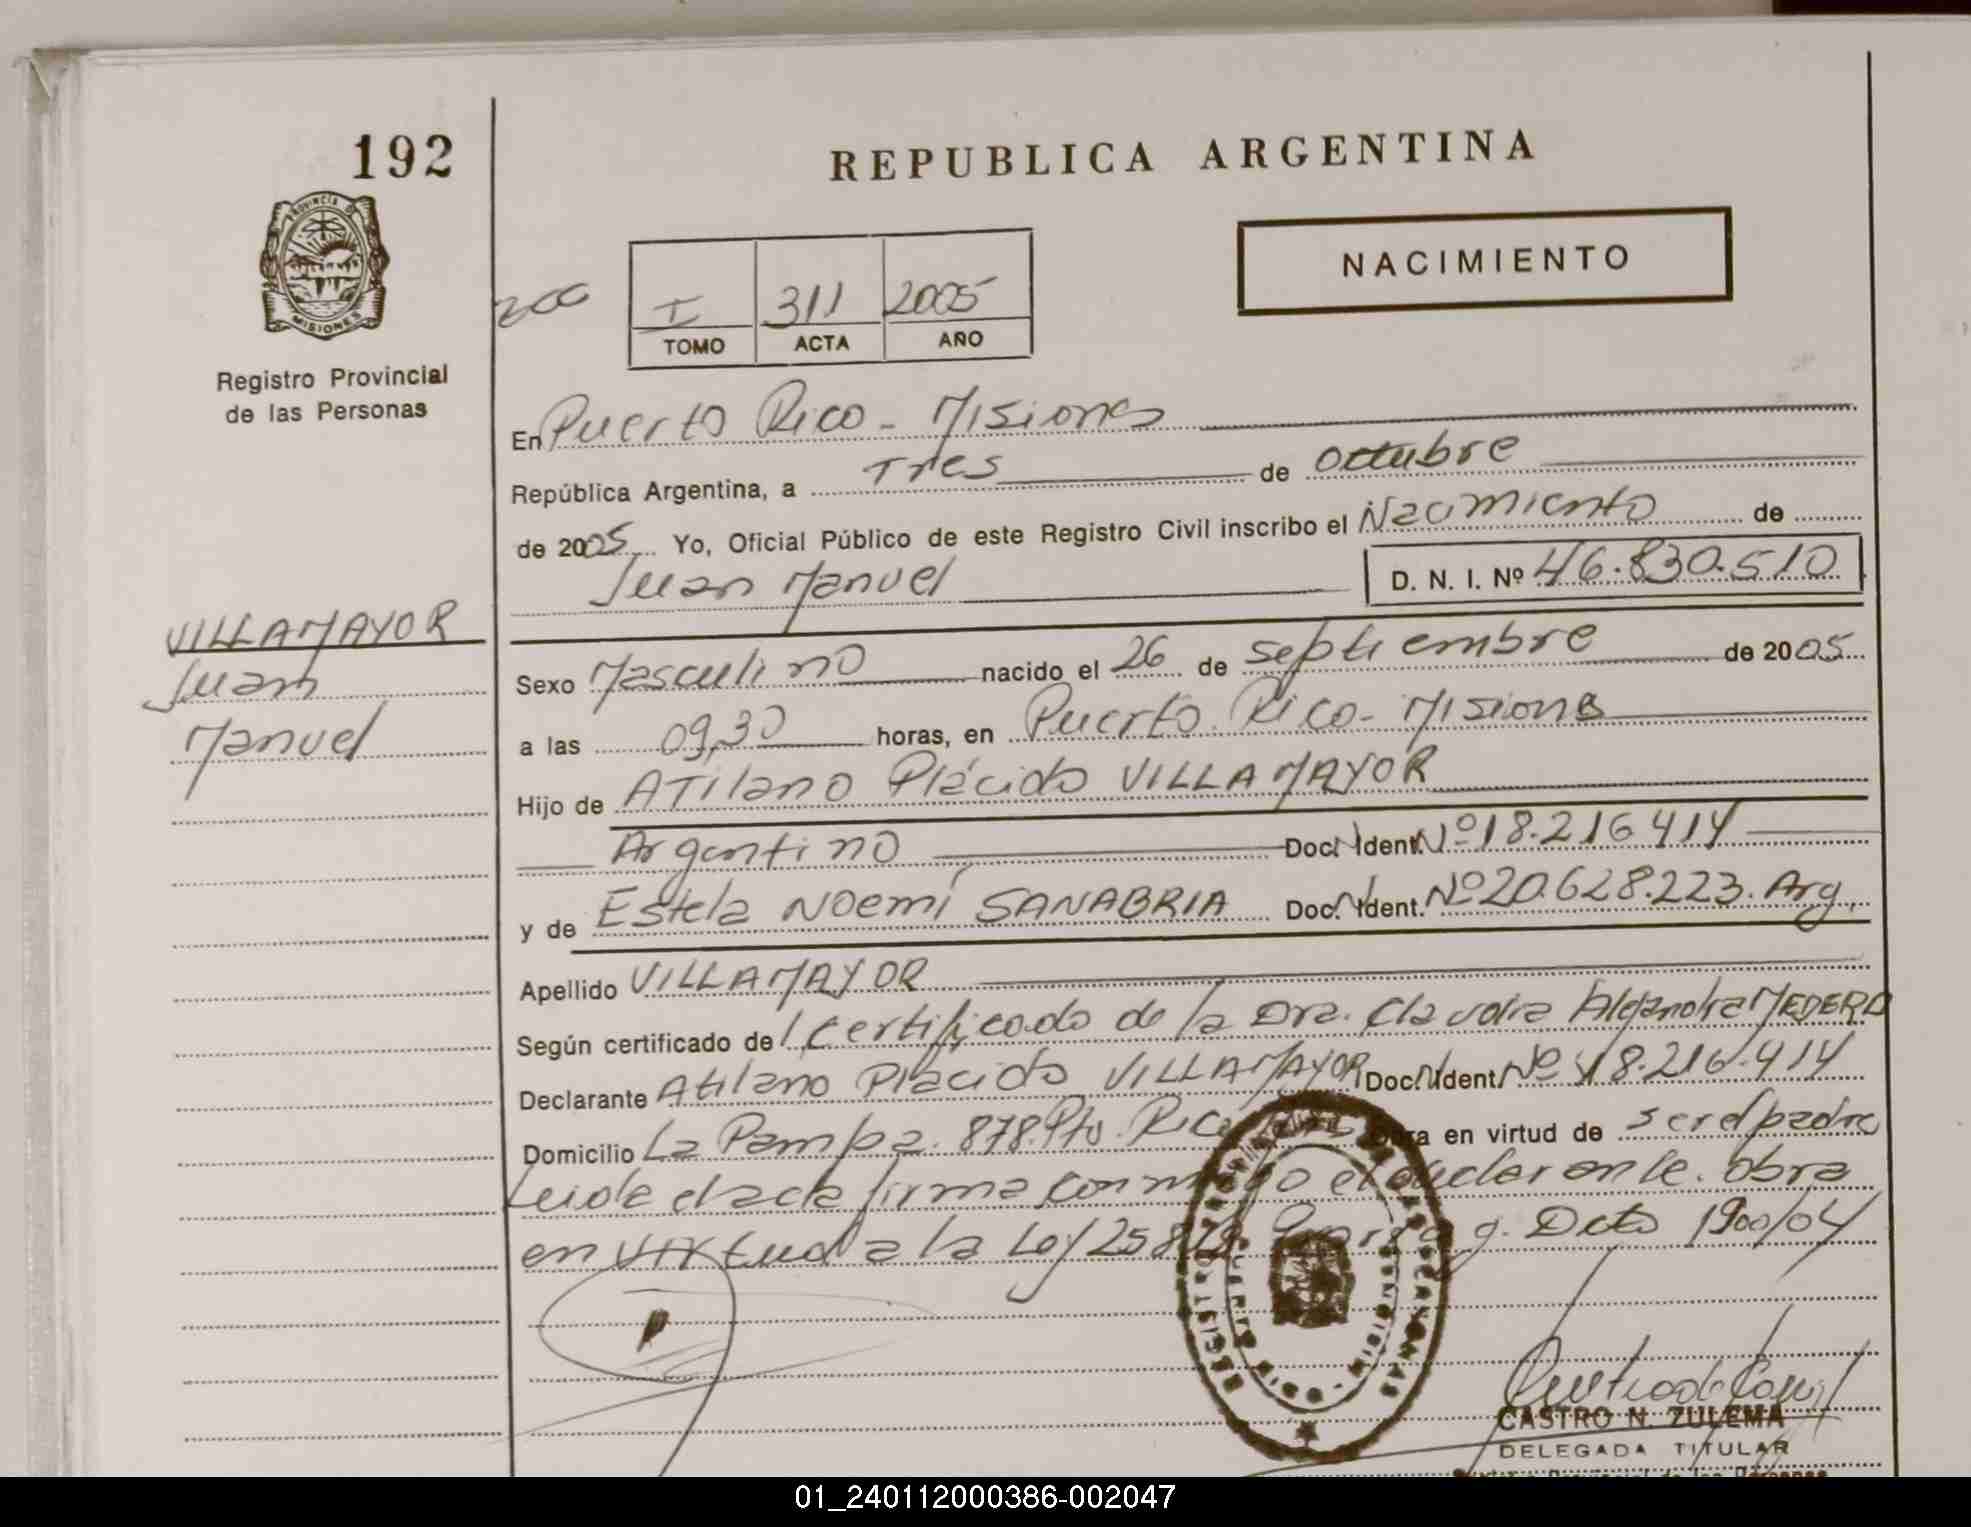 192
REPUBLICA ARGENTINA
PROVINCIA DE
MISIONES
Registro Provincial
de las Personas
NACIMIENTO
200
I 311 2005
TOMO ACTA AÑO
En Puerto Rico - Misiones
República Argentina, a Tres de Octubre
de 2005 Yo, Oficial Público de este Registro Civil inscribo el Nacimiento de
Juan Manuel D. N. I. Nº 46.830.510
VILLAMAYOR
Juan
Manuel
Sexo Masculino nacido el 26 de septiembre de 2005
a las 09,30 horas, en Puerto Rico - Misiones
Hijo de Atilano Plácido VILLAMAYOR
Argentino Doc. Ident. Nº 18.216.414
y de Estela Noemí SANABRIA Doc. Ident. Nº 20.628.223. Arg.
Apellido VILLAMAYOR
Según certificado de l certificado de la Dra. Claudia Alejandra MEDERO
Declarante Atilano Plácido VILLAMAYOR Doc. Ident. Nº 18.216.414
Domicilio La Pampa 878. Pto. Rico Obra en virtud de ser el padre
Leida el acta firma conmigo el declarante. Obra
en virtud a la Ley Prorrog. Dcto 1900/04
CASTRO N. ZULEMA
DELEGADA TITULAR
01_240112000386-002047